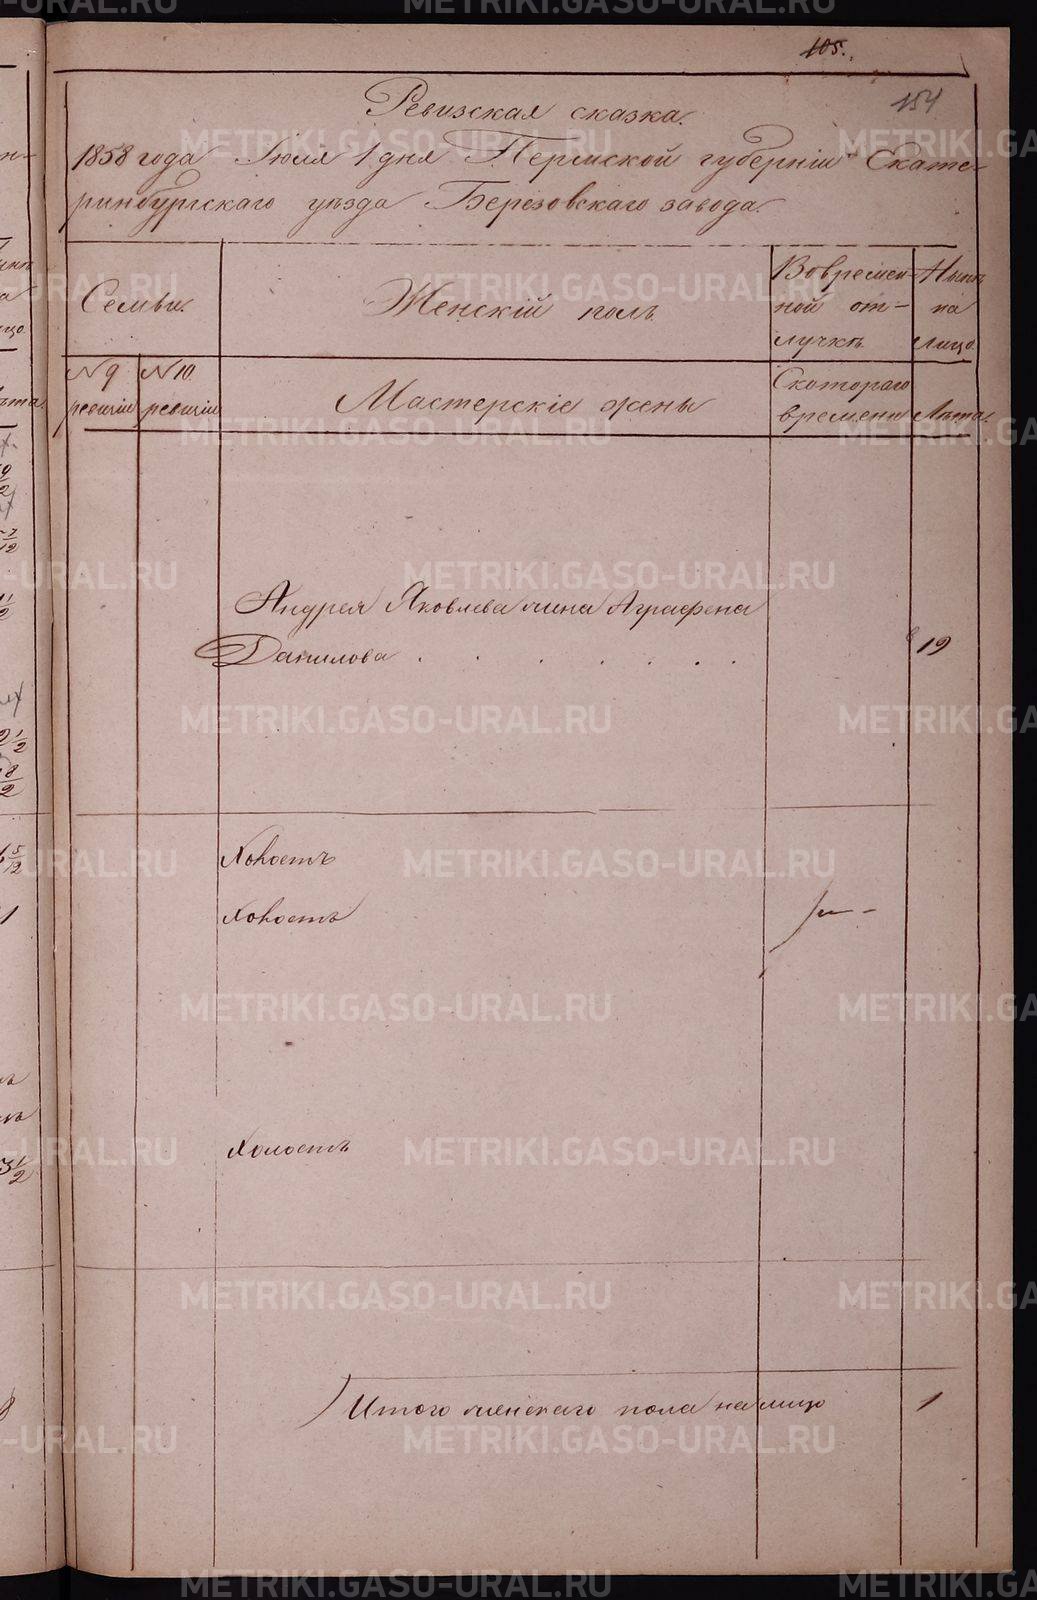 105.
154
Ревизская сказка.
1858 года Іюля 1 дня Пермской губерніи Екате-
ринбургскаго уѣзда Березовскаго завода.
Семьи.
Женскій полъ
Вовремен-
ной от-
лучкѣ
Нынѣ
на
лицо
№ 9
ревизіи
№ 10
ревизіи
Мастерскіе жены
Скотораго
времени
Лѣта.
Андрея Яковлева жена Аграфена
Данилова . . . . . .
19
Холостъ
Холостъ
Холостъ
Итого женскаго пола налицо
1
METRIKI.GASO-URAL.RU